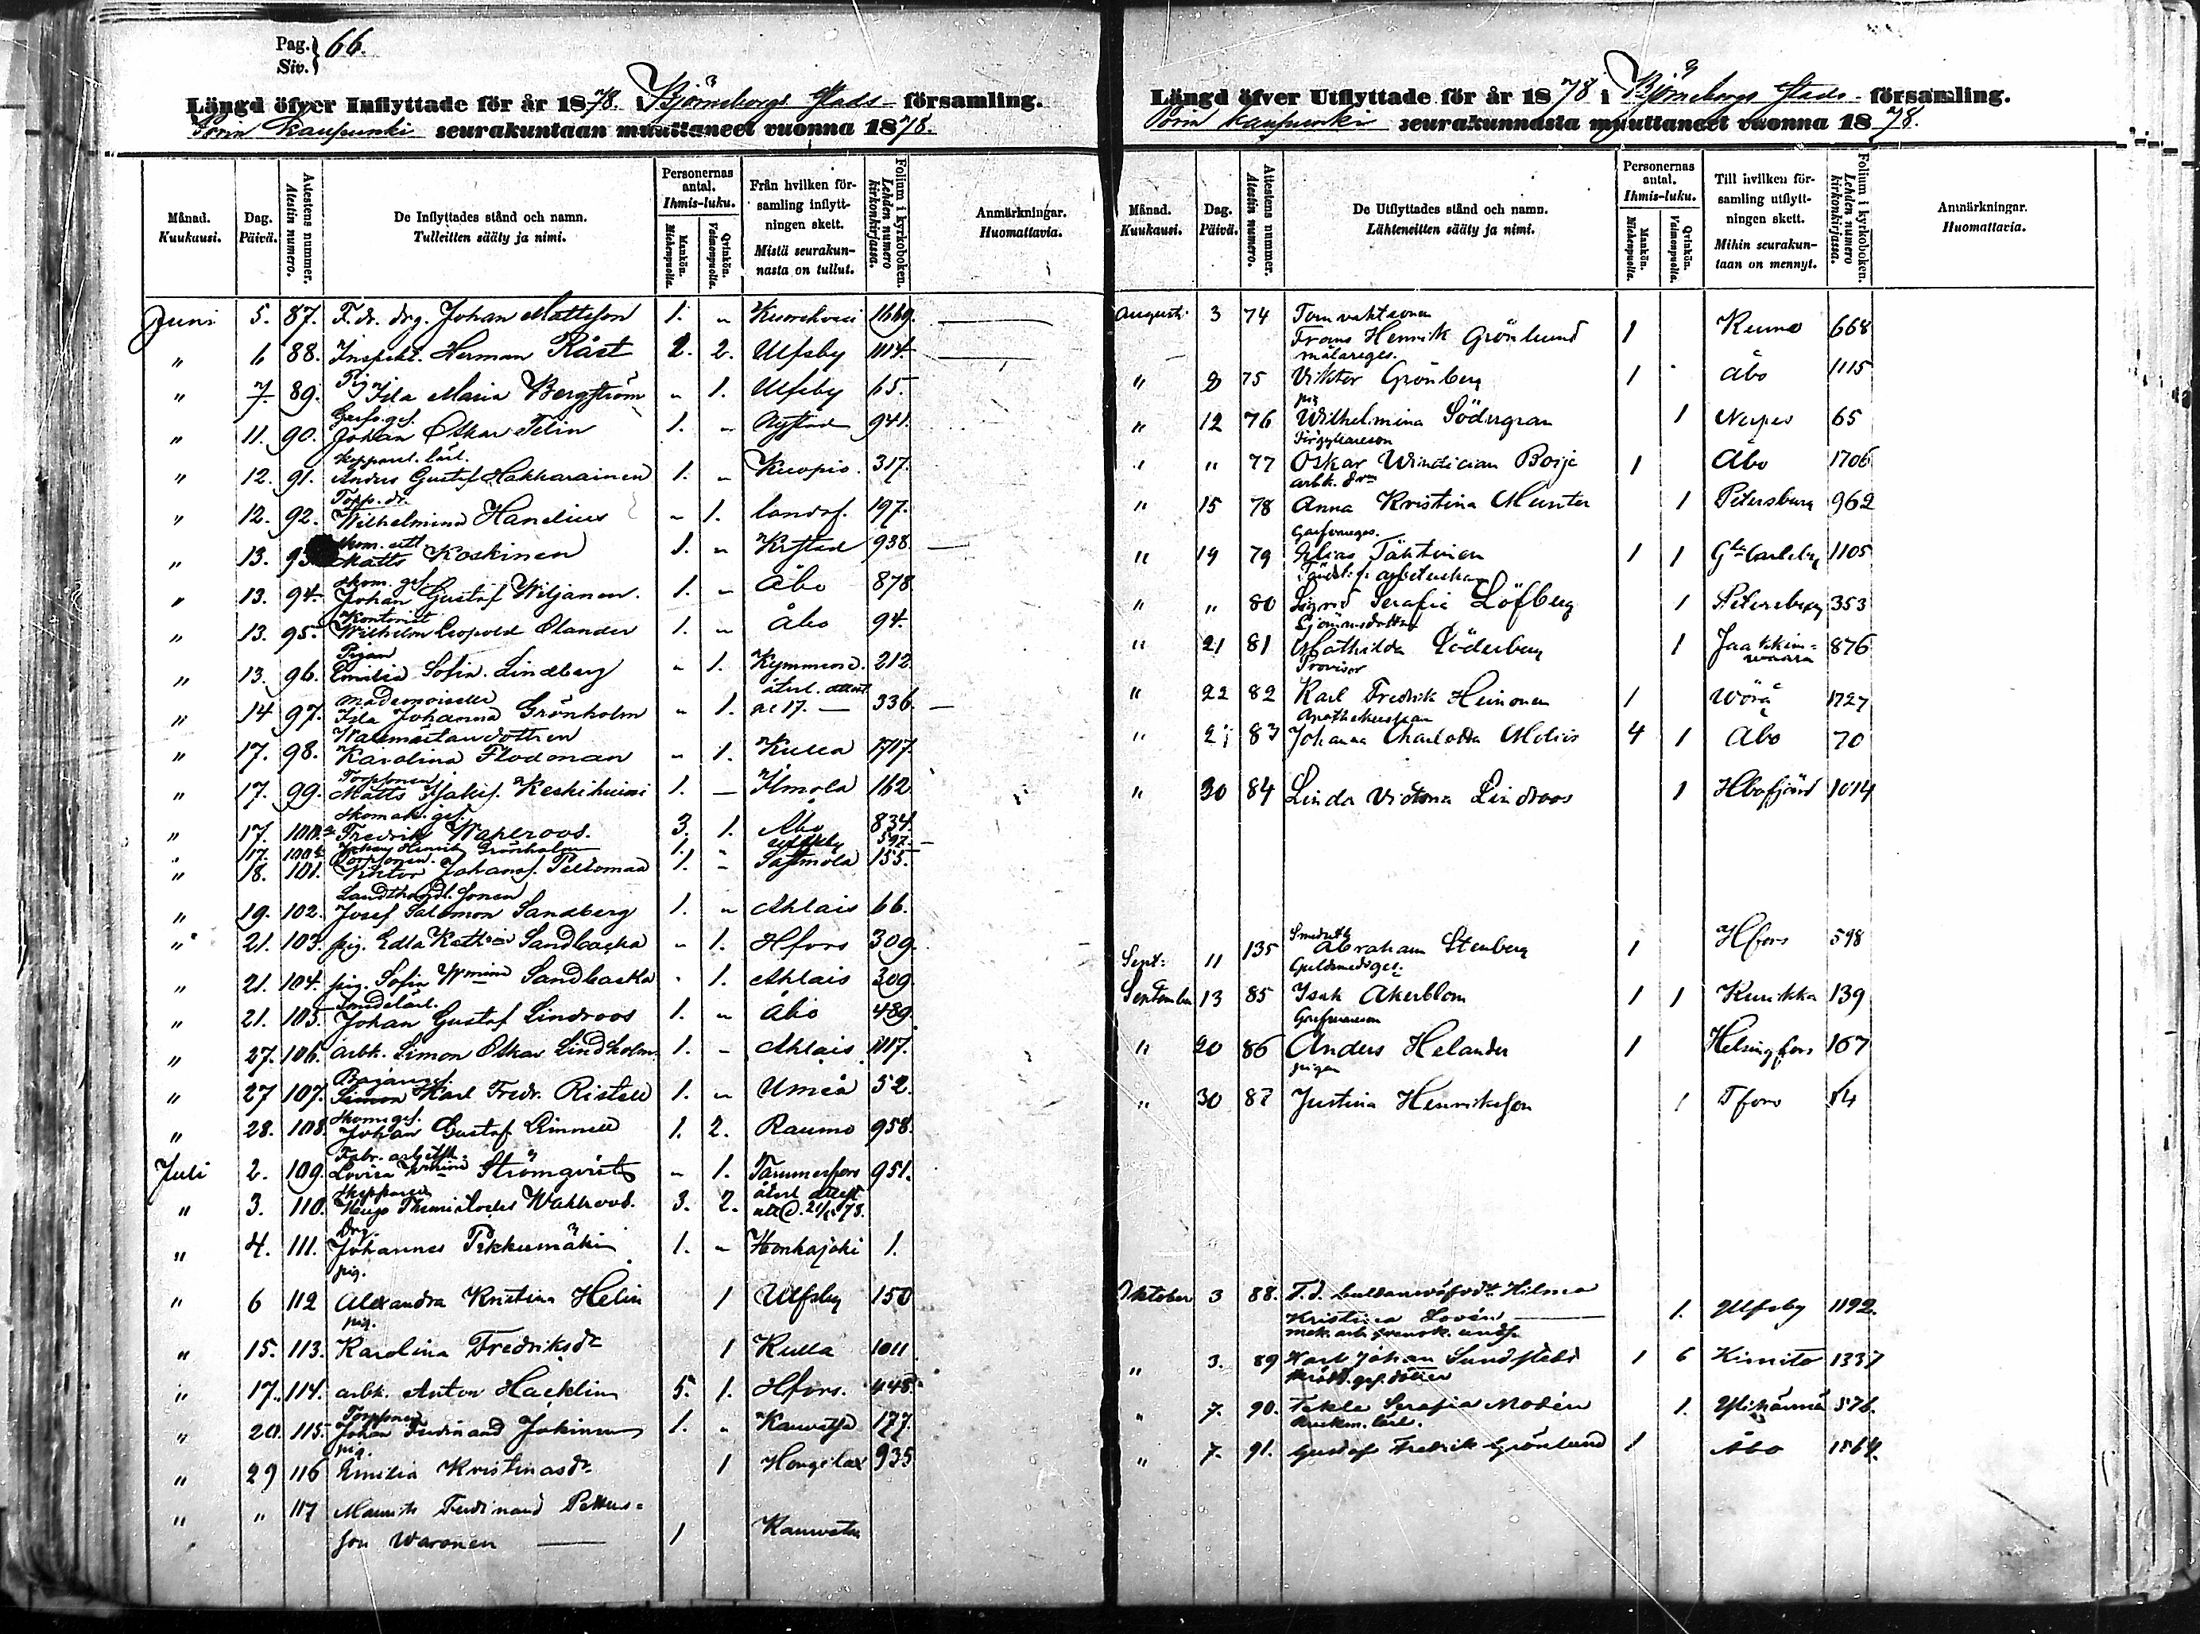 Pag. } 66.
Siv. }
Längd öfver Inflyttade för år 1878. i Björneborgs Stads församling.
Porin Kaupunki seurakuntaan muuttaneet vuonna 1878.
Månad. Kuukausi.
Dag. Päivä.
Attestens nummer. Atestin numero.
De Inflyttades stånd och namn. Tulleitten sääty ja nimi.
Personernas antal. Ihmis-luku.
Mankön. Miehenpuolia.
Qvinkön. Vaimonpuolia.
Från hvilken församling inflyttningen skett. Mistä seurakunnasta on tullut.
Folium i kyrkoboken. Lehden numero kirkonkirjassa.
Anmärkningar. Huomattavia.
Juni 5. 87. F. dr. drg. Johan Mattsson 1. „ 1669.
„ 6 88. Inspekt. Herman Råst 2. 2. Ulfsby 1114.
„ 7. 89. Pig. Ida Maria Bergström „ 1. Ulfsby 65.
„ 11. 90. Johan Oskar Telin 1. „ Nystad 941.
„ 12. 91. Anders Gustaf Hakkarainen 1. „ Kuopio. 317.
„ 12. 92. Wilhelmina Hanelius „ 1. landsf. 197.
„ 13. 93. Matts Koskinen 1. „ Krstad 938.
„ 13. 94. Skom. ges. Johan Gustaf Wiljanen. 1. „ Åbo 878
„ 13. 95. Kontorist Wilhelm Leopold Olander 1. „ Åbo 94.
„ 13. 96. Pigan Emilia Sofia Lindberg „ 1. Kymmene. 212.
„ 14 97. Mademoiselle Ida Johanna Grönholm „ 1. återl. attest 336.
„ 17. 98. Karolina Flodman „ 1. Kulla 1717.
„ 17. 99. Torpsonen Matts Keskihuimi 1. — Ilmola 162
„ 17. 100a Skomak. ges. Fredrik Wahlroos. 3. 1. Åbo 834.
17. 100b Johan Henrik Grönholm 1. „ Ulfsby 592.
„ 18. 101. Torpsonen Viktor Johansf. Peltomaa 1. „ Sastmola 155.
„ 19. 102. Josef Salomon Sandberg 1. „ Ahlais 66.
„ 21. 103. pig. Edla Sandbacka „ 1. Hfors 309.
„ 21. 104. pig. Sofia Wmina Sandbacka „ 1. Ahlais 309
„ 21. 105. Johan Gustaf Lindroos 1. „ Åbo 489.
„ 27. 106. arbk. Simon Oskar Lindholm 1. „ Ahlais 1117.
„ 27 107. Karl Fredr. Ristell 1. „ Umeå 52.
„ 28. 108. Skom ges. Johan Gustaf Linnell 1. 2. Raumo 958.
Juli 2. 109. Lovisa Wmina Strömqvist „ 1. Tammerfors 951.
„ 3. 110. Skepparen Hugo Themistocles Wahlroos. 3. 2. återl. attest
„ 4. 111. Drg. Johannes Pikkumäki 1. „ Honkajoki 1.
„ 6 112 pig. Alexandra Kristina Helin 1 Ulfsby 150
„ 15. 113. pig. Karolina Fredriksdr 1 Kulla 1011
„ 17. 114. arbk. Anton Hacklin 5. 1. Hfors. 448.
„ 20. 115. Torpsonen Johan Ferdinand Jokinen 1. „ Kauvatsa 177.
„ 29 116 pig. Emilia Kristinasdr 1 Hongilax 935
„ „ 117 Maurits Ferdinand Petters=
son Waronen 1 Kauvatsa
Längd öfver Utflyttade för år 1878 i Björneborgs Stads församling.
Porin kaupunki seurakunnasta muuttaneet vuonna 1878.
Månad. Kuukausi.
Dag. Päivä.
Attestens nummer. Atestin numero.
De Utflyttades stånd och namn. Lähteneitten sääty ja nimi.
Personernas antal. Ihmis-luku.
Mankön. Miehenpuolia.
Qvinkön. Vaimonpuolia.
Till hvilken församling utflyttningen skett. Mihin seurakuntaan on mennyt.
Folium i kyrkoboken. Lehden numero kirkonkirjassa.
Anmärkningar. Huomattavia.
Augusti 3 74 Frans Henrik Grönlund 1 668
„ 8 75 målareges. Viktor Grönberg 1 Åbo 1115
„ 12 76 pig Wilhelmina Södergran 1 Nerpes 65
„ „ 77 Oskar Boije 1 Åbo 1706
„ 15 78 Anna Kristina Munter 1 Petersburg 962
„ 19 79 Garfvareges. Elias Tähtinen 1 1 Gla Carleby 1105
„ „ 80 Sigrid Serafia Löfberg 1 Petersburg 353
„ 21 81 Sjömansdotter Mathilda Söderberg 1 Jaakkimvaara 876
„ 22 82 Provisor Karl Fredrik Heinonen 1 Wörå 1727
„ 83 Johanna Charlotta Melin 4 1 Åbo 70
„ 30 84 Linda Victoria Lindroos 1 1014
Sept: 11 135 Abraham Stenberg 1 Hfors 598
September 13 85 Guldsmedsges. Isak Åkerblom 1 1 Kurikka 139
„ 20 86 Anders Helander 1 Helsingfors 167
„ 30 87 pigan Justina Henriksson 1 Tfors 14
Oktober 3 88. Hilma
Kristina Lovén 1. Ulfsby 1192.
„ 3. 89 Karl Johan Sundstedt 1 6 Kimito 1337
„ 7. 90. Tekla Serafia Modén 1. Ylihärmä 576.
„ 7. 91. Gustaf Fredrik Grönlund 1 Åbo 1564.